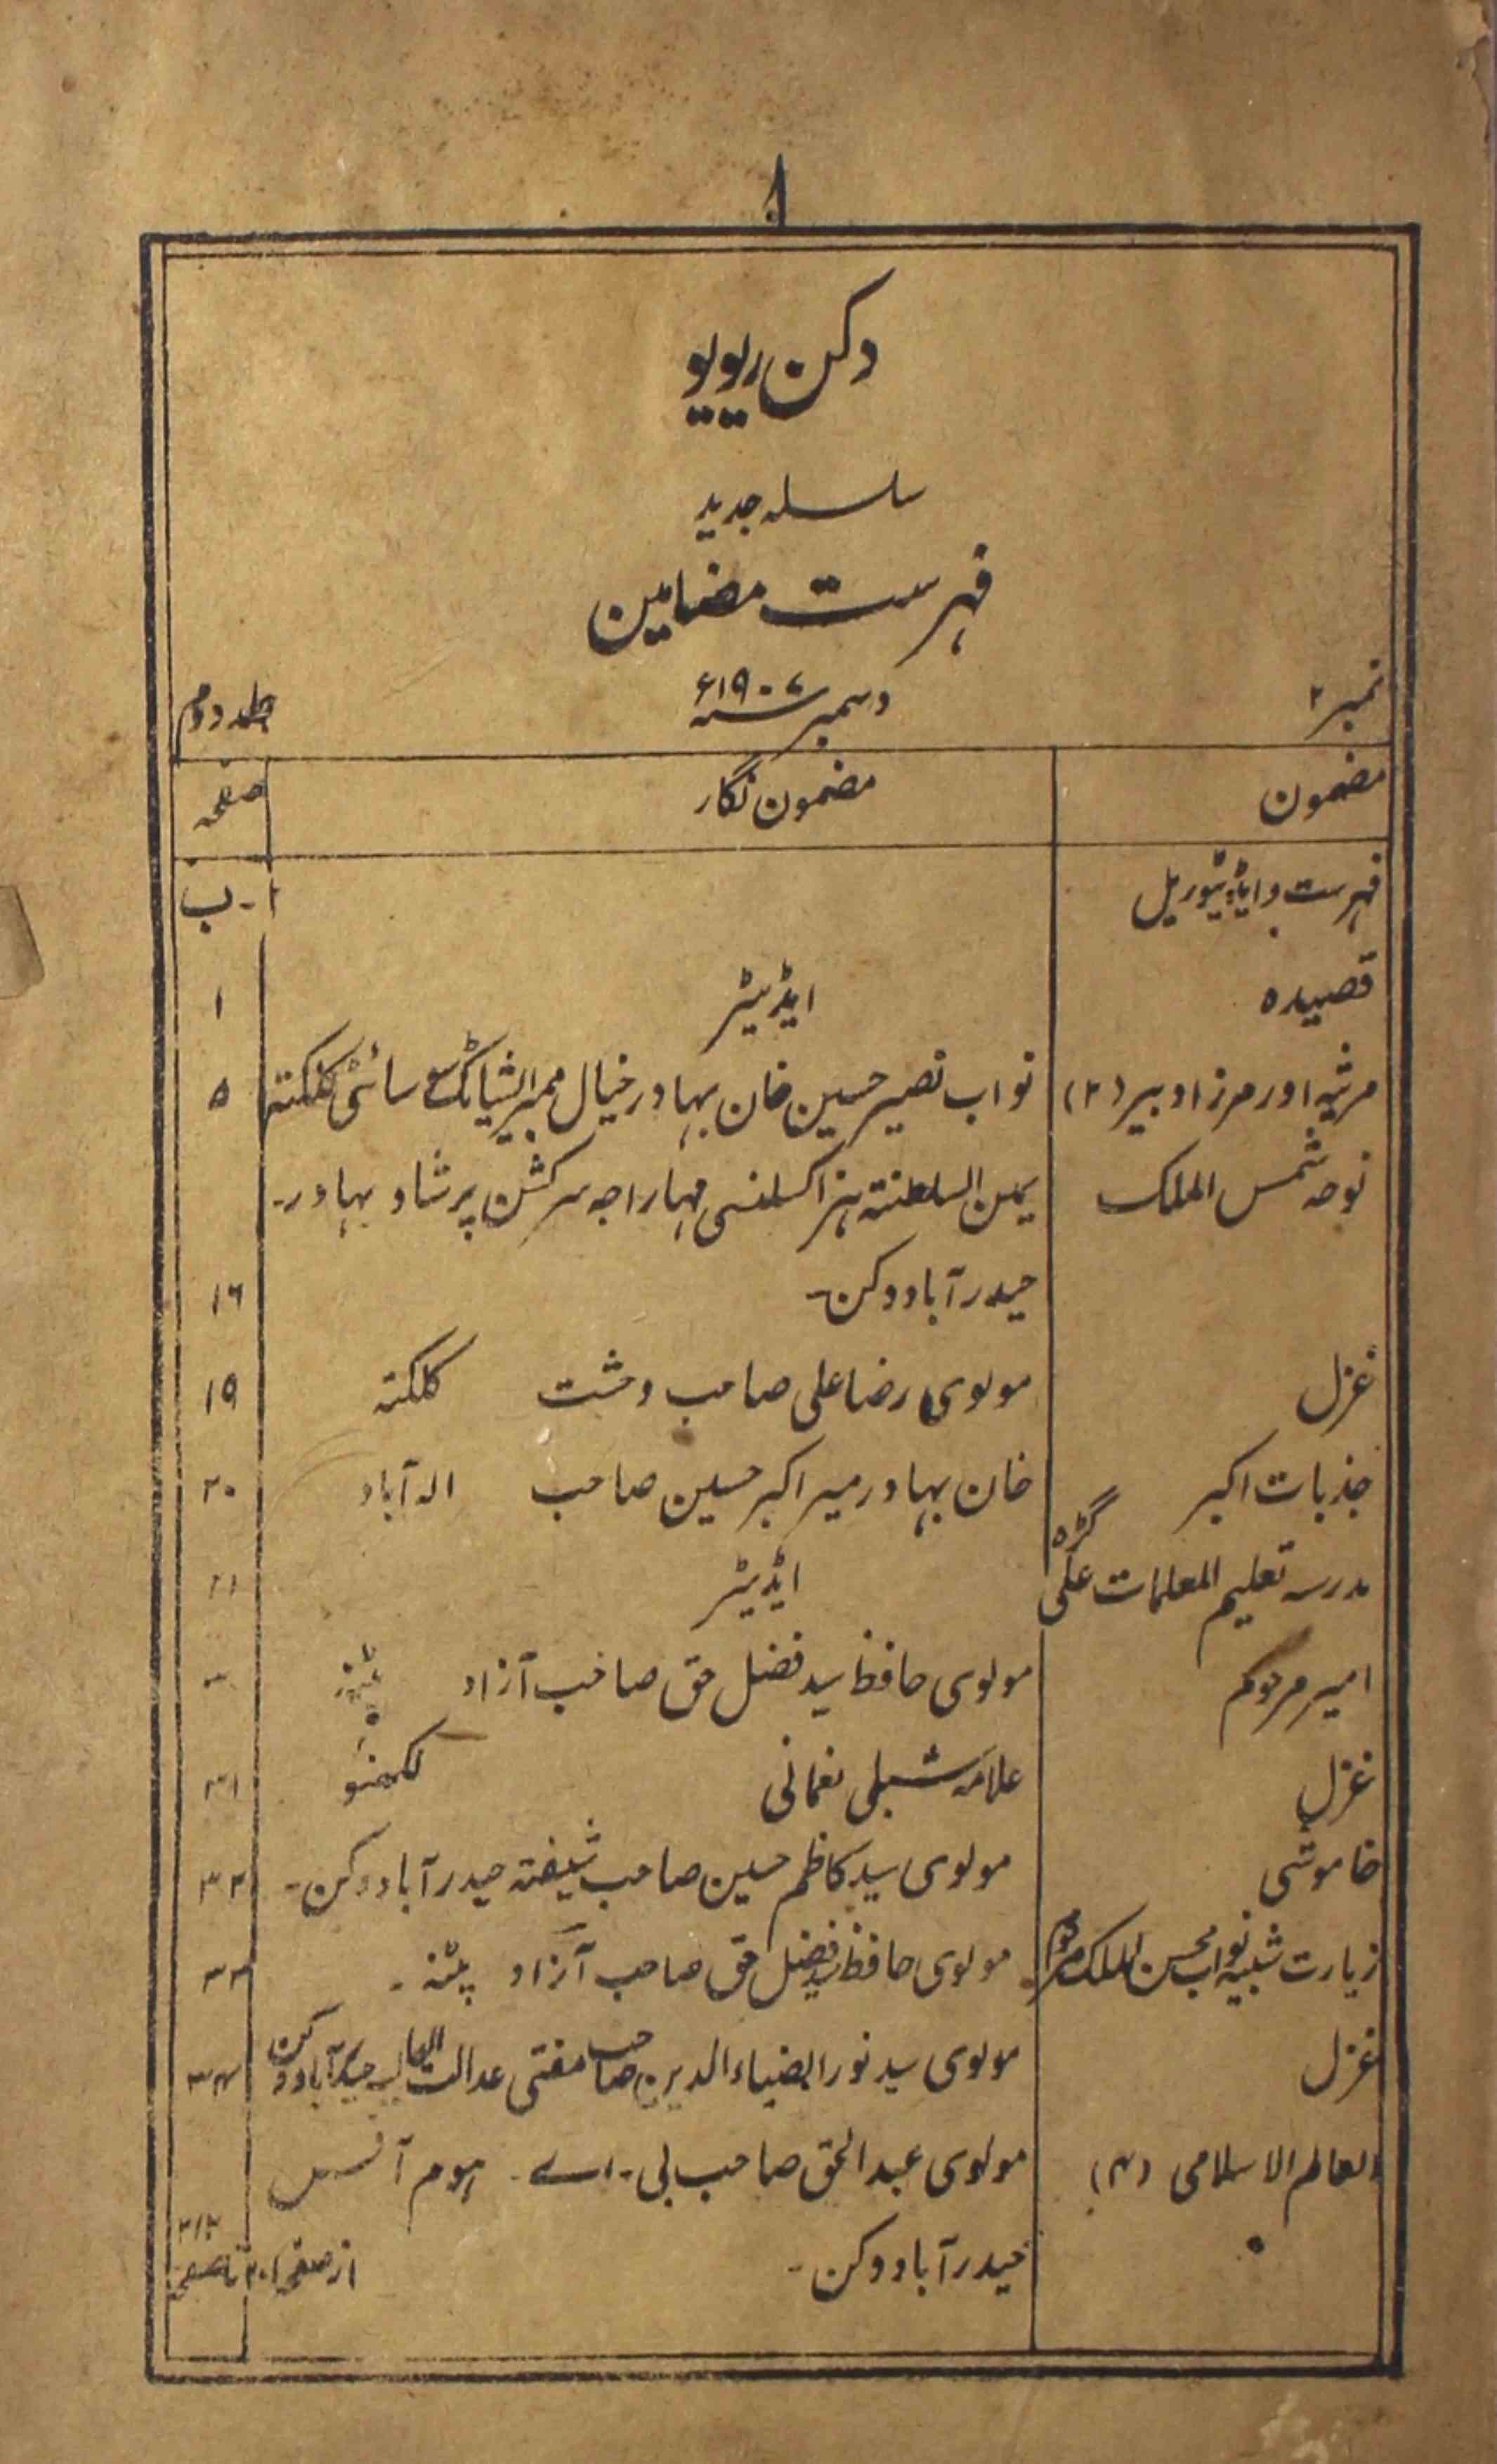 ا
دکن ریویو
سلسلہ جدید
فہرست مضامین
نمبر ۲ دسمبر سنہ ۱۹۰۷ء جلد دوم
مضمون مضمون نگار صفحہ
فہرست و ایڈیٹوریل ا - ب
قصیدہ ایڈیٹر ۱
مرثیہ اور مرزا دبیر (۲) نواب نصیر حسین خان بہادر خیال ممبر ایشیاٹک سوسائٹی کلکتہ ۵
نوحہ شمس الملک یمین السلطنتہ ہز اکسلنسی مہاراجہ سرکشن پرشاد بہادر-
حیدرآباد دکن- ۱۶
غزل مولوی رضا علی صاحب وحشت کلکتہ ۱۹
جذبات اکبر خان بہادر میر اکبر حسین صاحب الہ آباد ۲۰
مدرسہ تعلیم المعلمات علی گڑہ ایڈیٹر ۲۱
امیر مرحوم مولوی حافظ سید فضل حق صاحب آزاد
غزل علامہ شبلی نعمانی لکھنؤ ۳۱
خاموشی مولوی سید کاظم حسین صاحب شیفتہ حیدرآباد دکن- ۳۲
زیارت شبیہ نواب محسن الملک مرحوم مولوی حافظ سید فضل حق صاحب آزاد پٹنہ - ۳۳
غزل مولوی سید نور الضیاء الدین صاحب مفتی عدالت العالیہ حیدرآباد دکن ۳۴
العالم الاسلامی (۴) مولوی عبد الحق صاحب بی - اے - ہوم آفس
حیدرآباد دکن - از صفحہ ۲۰۱ تا صفحہ ۲۱۲